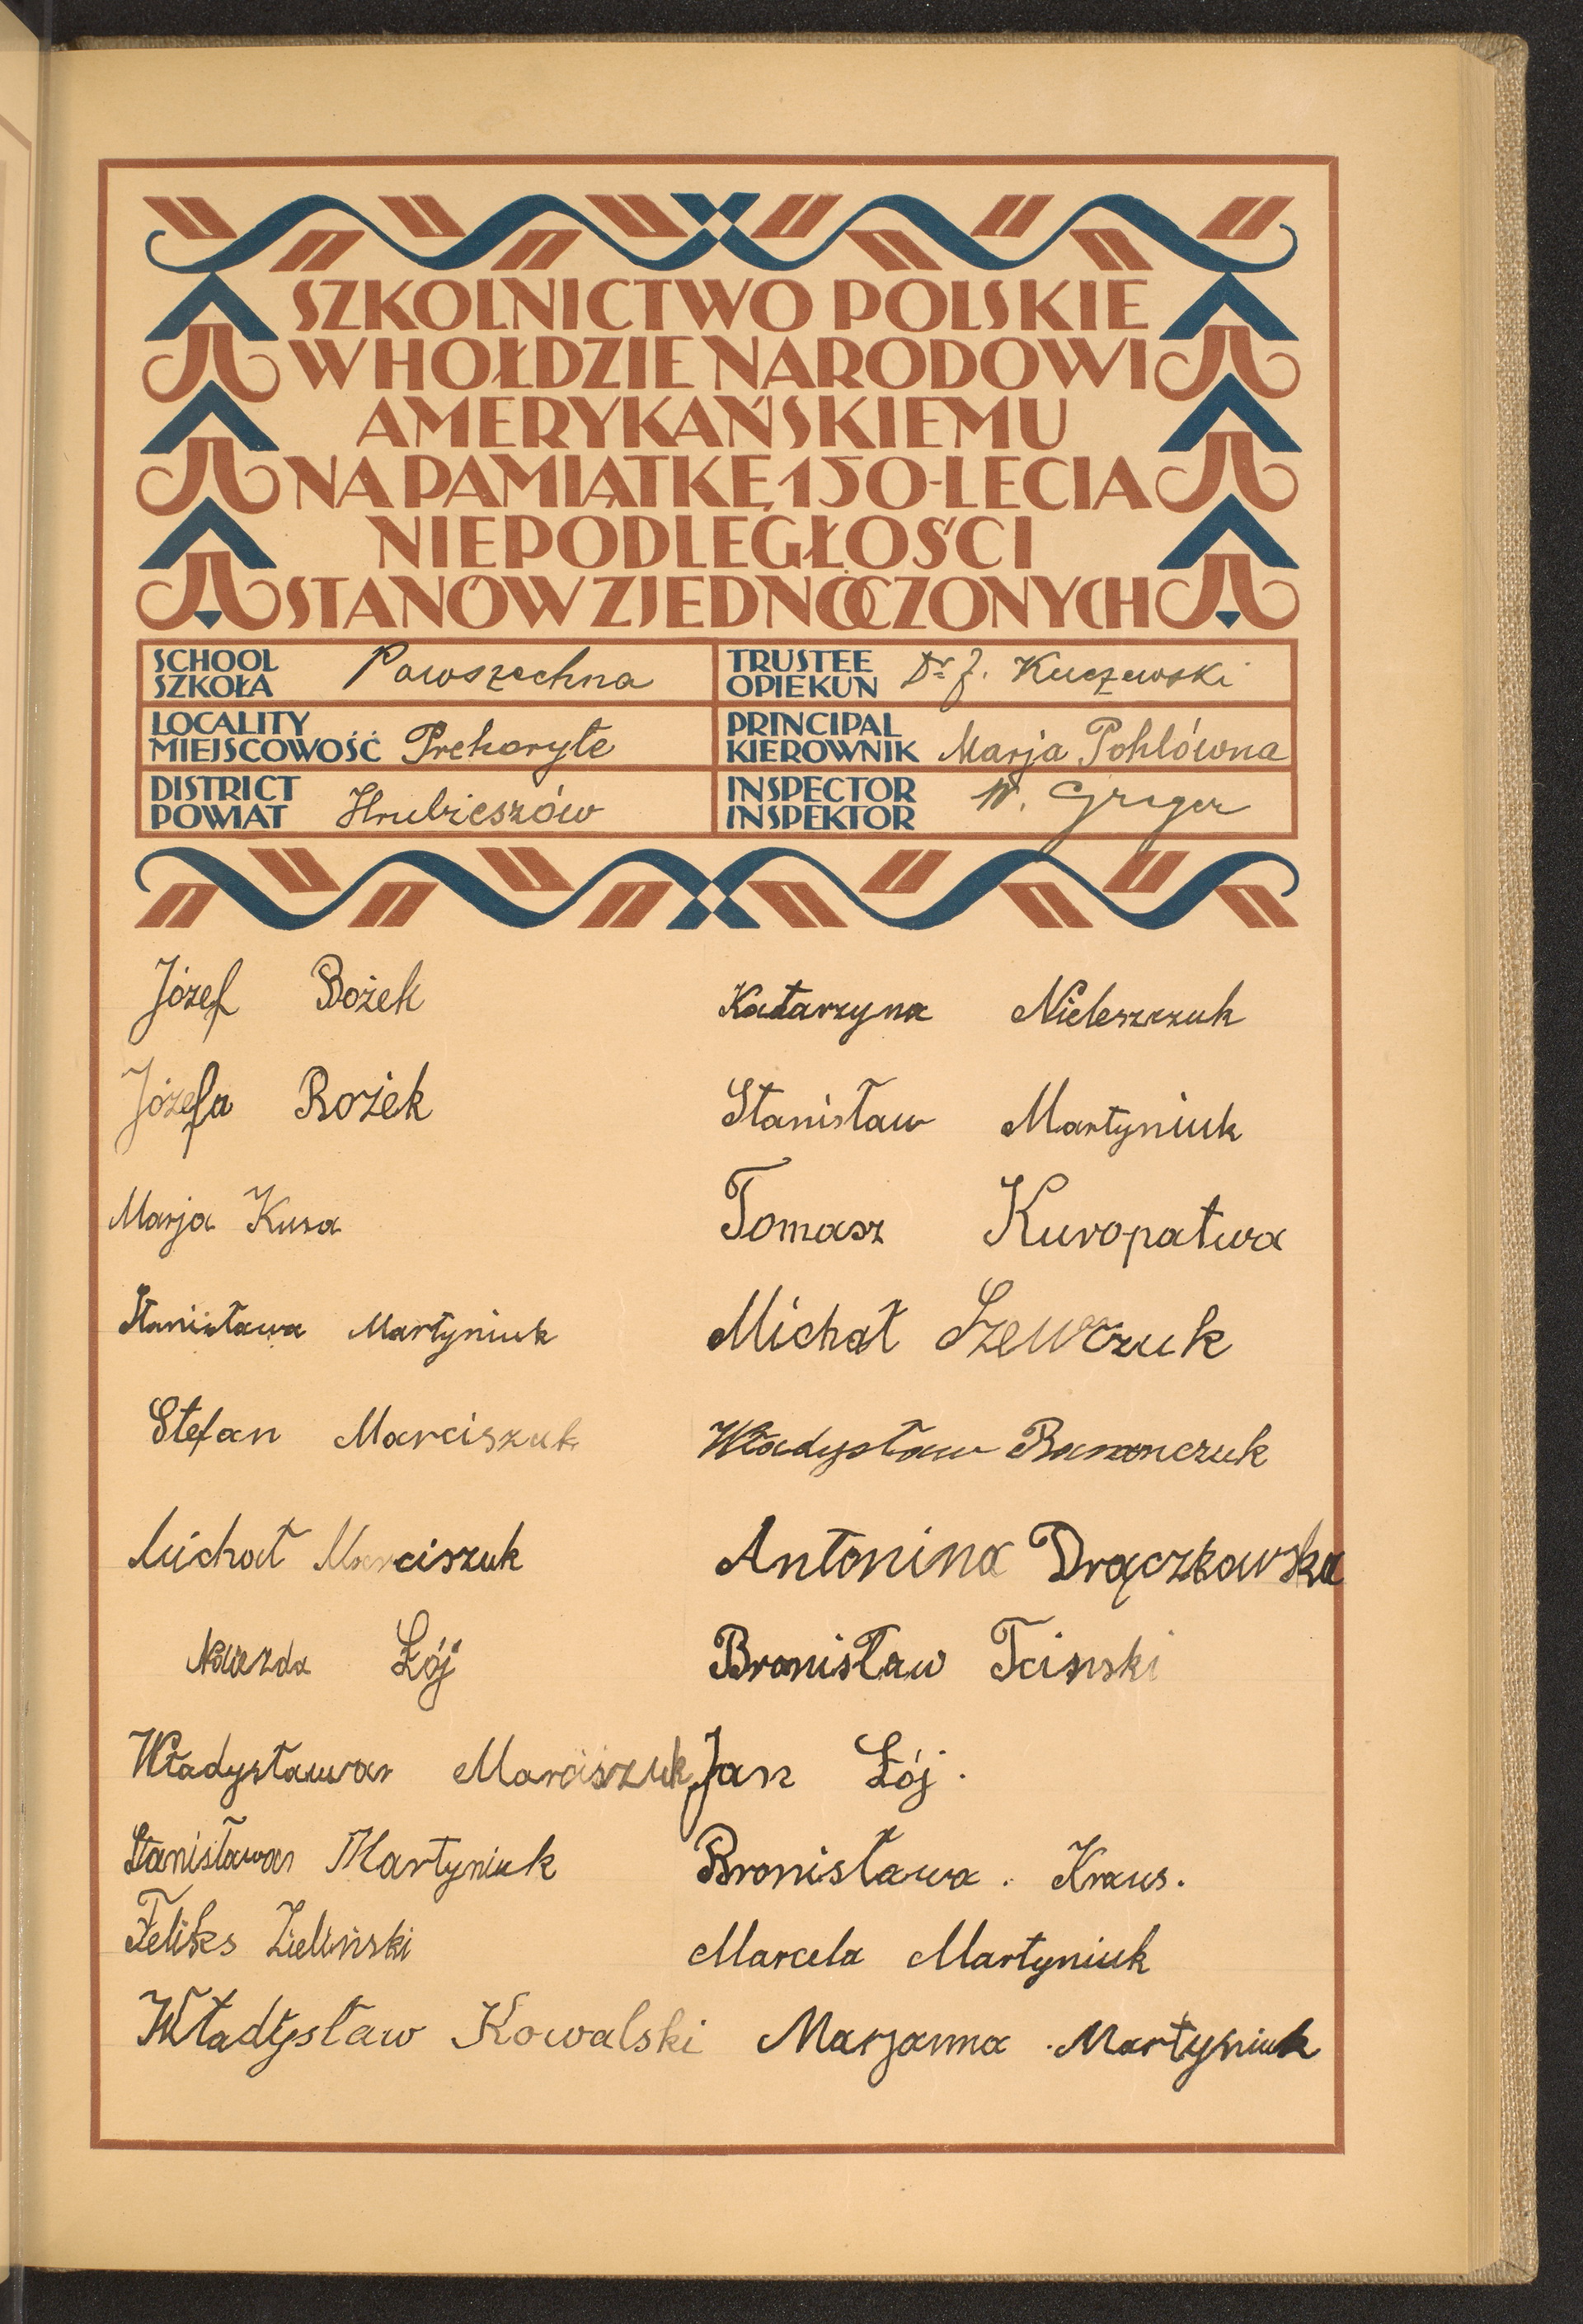 SZKOLNICTWO POLSKIE
W HOŁDZIE NARODOWI
AMERYKAŃSKIEMU
NA PAMIĄTKĘ 150-LECIA
NIEPODLEGŁOŚCI
STANÓW ZJEDNOCZONYCH
SCHOOL
SZKOŁA
Powszechna
TRUSTEE
OPIEKUN
Dr J. Kuczewski
LOCALITY
MIEJSCOWOŚĆ
Prehoryłe
PRINCIPAL
KIEROWNIK
Marja Pohlówna
DISTRICT
POWIAT
Hrubieszów
INSPECTOR
INSPEKTOR
W. Greger
Józef Bożek
Józefa Rożek
Marja Kusa
Stanisława Martyniuk
Stefan Marciszuk
Michał Marciszuk
Łój
Władysława Marciszuk
Stanisława Martyniuk
Feliks Zieliński
Władysław Kowalski
Katarzyna Nieleszczuk
Stanisław Martyniuk
Tomasz Kuropatwa
Michał Szewczuk
Władysław
Antonina Drączkowska
Bronisław
Jan Łój.
Bronisława. Kraus.
Marcela Martyniuk
Marjanna Martyniuk